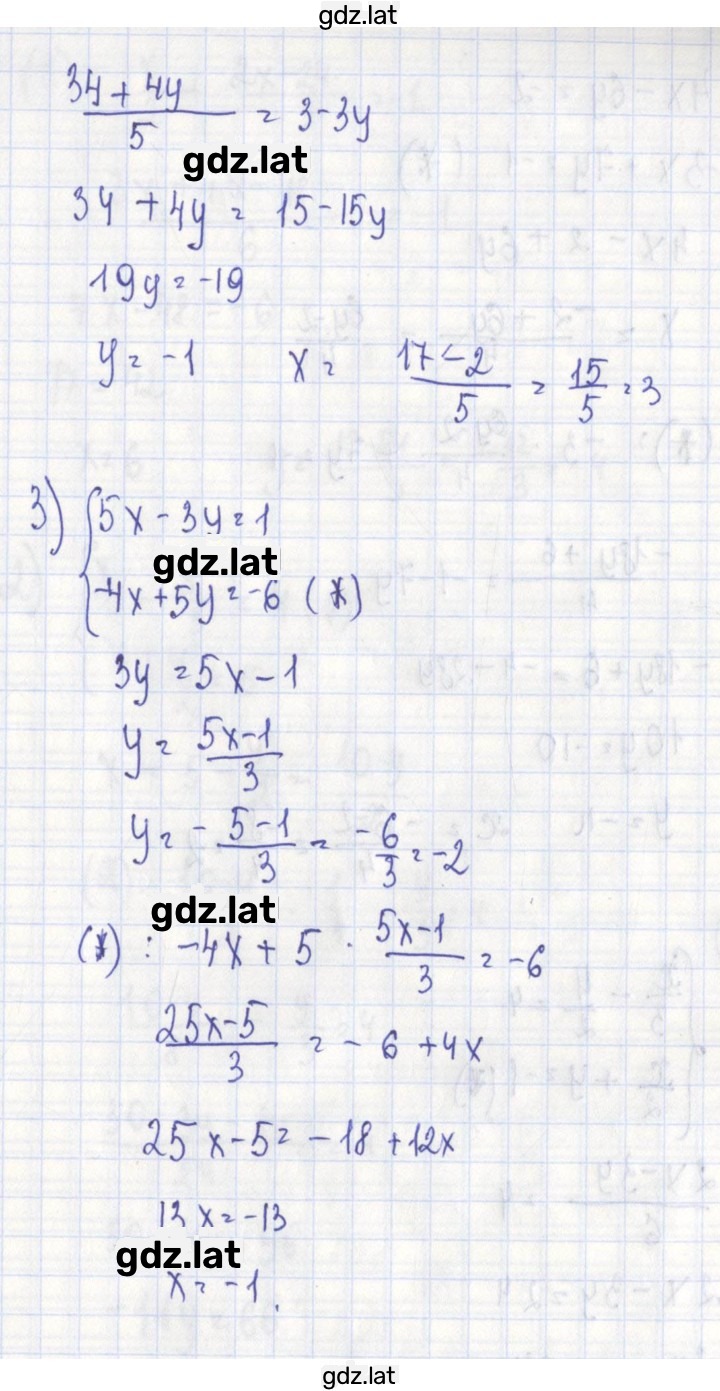 gdz.lat
34 + 4y / 5 = 3 - 3y
gdz.lat
34 + 4y = 15 - 15y
19y = -19
y = -1 x = 17 - 2 / 5 = 15 / 5 = 3
3) { 5x - 3y = 1
gdz.lat
-4x + 5y = -6 (*)
3y = 5x - 1
y = 5x - 1 / 3
y = - 5 - 1 / 3 = -6 / 3 = -2
gdz.lat
(*) : -4x + 5 · 5x - 1 / 3 = -6
25x - 5 / 3 = - 6 + 4x
25x - 5 = - 18 + 12x
13x = -13
gdz.lat
x = -1.
gdz.lat